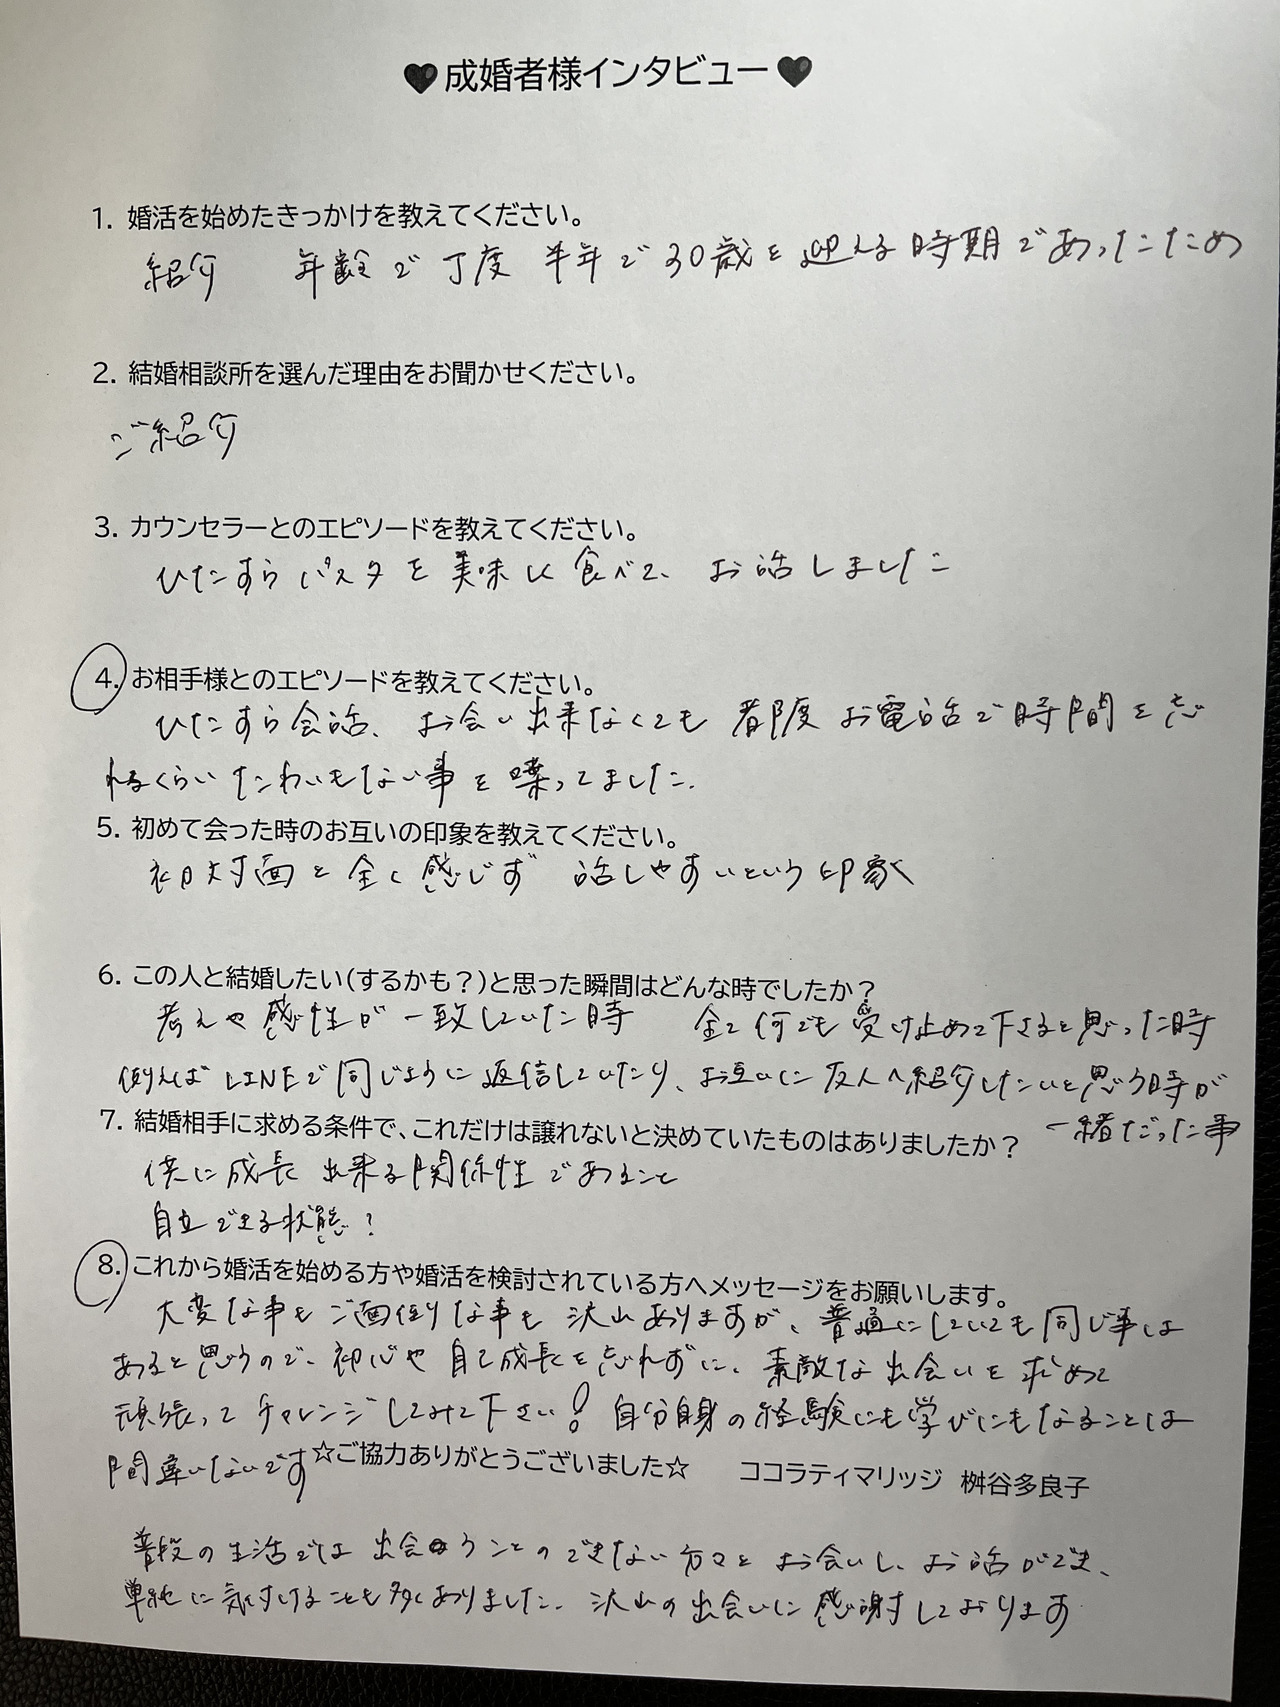 🖤成婚者様インタビュー🖤
1. 婚活を始めたきっかけを教えてください。
紹介　年齢で丁度 半年で30歳を迎える時期であったため
2. 結婚相談所を選んだ理由をお聞かせください。
ご紹介
3. カウンセラーとのエピソードを教えてください。
ひたすらパスタを美味しく食べて、お話しました
4. お相手様とのエピソードを教えてください。
ひたすら会話、お会い出来なくても都度お電話で時間を忘
れるくらいたわいもない事を喋ってました.
5. 初めて会った時のお互いの印象を教えてください。
初対面と全く感じず 話しやすいという印象
6. この人と結婚したい(するかも？)と思った瞬間はどんな時でしたか？
考えや感性が一致していた時　全て何でも受け止めて下さると思った時
例えばLINEで同じように返信していたり、お互いに友人へ紹介したいと思う時が
一緒だった事
7. 結婚相手に求める条件で、これだけは譲れないと決めていたものはありましたか？
供に成長出来る関係性であること
自立できる状態？
8. これから婚活を始める方や婚活を検討されている方へメッセージをお願いします。
大変な事もご面倒な事も沢山ありますが、普通にしていても同じ事は
あると思うので、初心や自己成長を忘れずに、素敵な出会いを求めて
頑張ってチャレンジしてみて下さい！自分自身の経験にも学びにもなることは
間違いないです
☆ご協力ありがとうございました☆　ココラティマリッジ　桝谷多良子
普段の生活では出会うことのできない方々とお会いし、お話ができ、
単純に気付けることも多くありました. 沢山の出会いに感謝しております